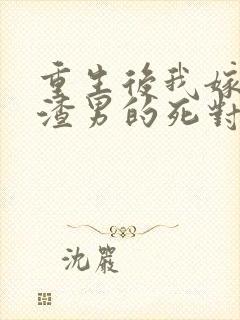 重生後我嫁
渣男的死對
沈嚴